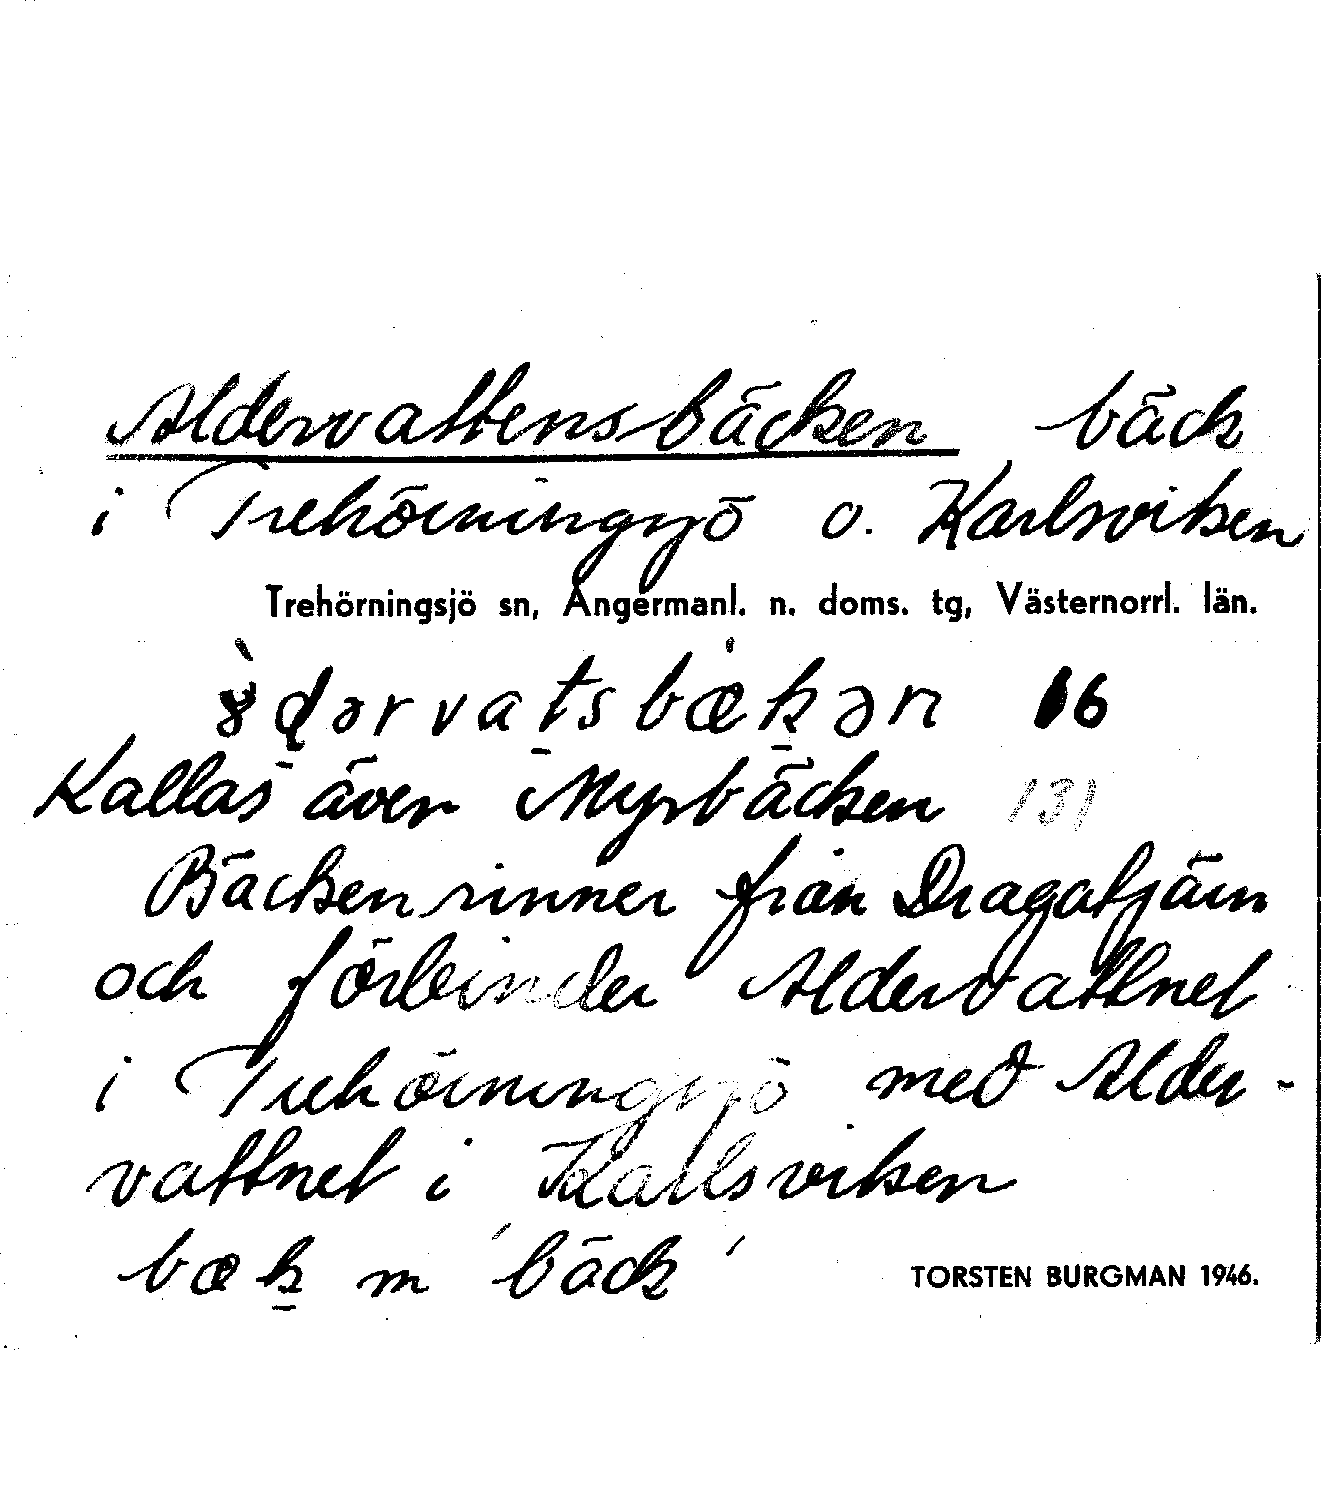 Aldervattensbäcken bäck
i Trehörningsjö o. Karlsviken
Trehörningsjö sn, Ångermanl. n. doms. tg, Västernorrl. län.
16
Kallas även Myrbäcken 131
Bäcken rinner från Dragatjärn
och förbinder Aldervattnet
i Trehörningsjö med Alder-
vattnet i Karlsviken
bæk m 'bäck'
TORSTEN BURGMAN 1946.